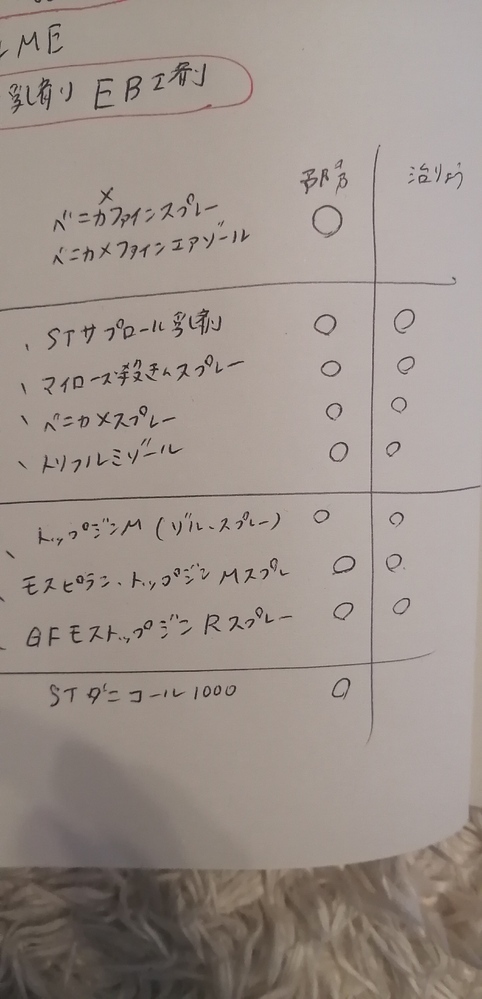 ME
乳剤 EBI剤
予防 治りょう
×
ベニカファインスプレー ○
ベニカメファインエアゾール
、STサプロール乳剤 ○ ○
、マイローズ殺きんスプレー ○ ○
、ベニカメスプレー ○ ○
、トリフルミゾール ○ ○
、トップジンM (ゾル、スプレー) ○ ○
、モスピラン、トップジンMスプレ ○ ○
、GFモストップジンRスプレー ○ ○
STダニコール1000 ○